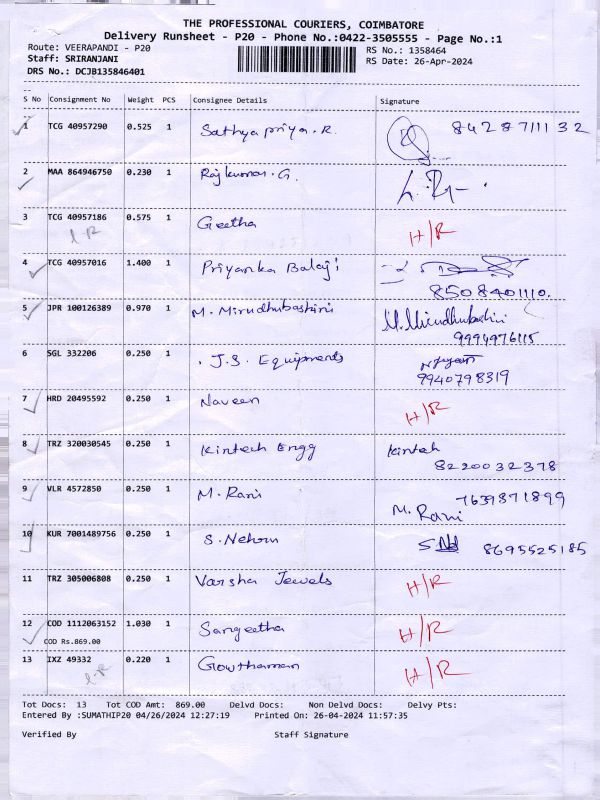 THE PROFESSIONAL COURIERS, COIMBATORE
Delivery Runsheet - P20 - Phone No.:0422-3505555 - Page No.:1
Route: VEERAPANDI - P20 RS No.: 1358464
Staff: SRIRANJANI RS Date: 26-Apr-2024
DRS No.: DCJB135846401
S No Consignment No Weight PCS Consignee Details Signature
1 TCG 40957290 0.525 1 Sathyapriya.R. 8428711132
2 MAA 864946750 0.230 1 Rajkumar.G.
3 TCG 40957186 0.575 1 Geetha H/R
4 TCG 40957016 1.400 1 Priyanka Balaji
8508401110.
5 JPR 100126389 0.970 1 M. Mirudhubashini M. Mirudhubashini
9994976115
6 SGL 332206 0.250 1 J.S. Equipments
9940798319
7 HRD 20495592 0.250 1 Naveen H/R
8 TRZ 320030545 0.250 1 Kintech Engg Kinteh
8220032378
9 VLR 4572850 0.250 1 M. Rani M. Rani 7639871899
10 KUR 7001489756 0.250 1 S. Nehru 8695525185
11 TRZ 305006808 0.250 1 Varsha Jewels H/R
12 COD 1112063152 1.030 1 Sangeetha H/R
COD Rs.869.00
13 IXZ 49332 0.220 1 Gowthaman H/R
Tot Docs: 13 Tot COD Amt: 869.00 Delvd Docs: Non Delvd Docs: Delvy Pts:
Entered By :SUMATHIP20 04/26/2024 12:27:19 Printed On: 26-04-2024 11:57:35
Verified By Staff Signature